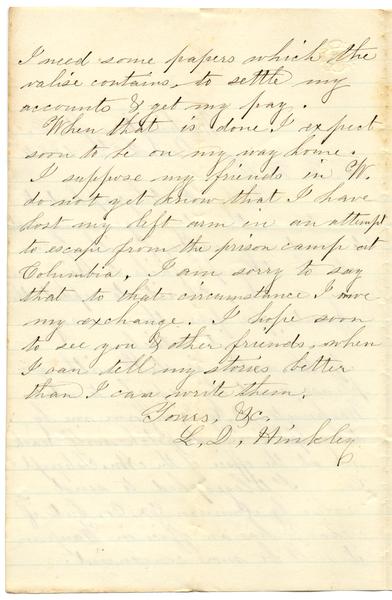 I need some papers which the
valise contains, to settle my
accounts & get my pay.
When that is done I expect
soon to be on my way home.
I suppose my friends in W.
do not yet know that I have
lost my left arm in an attempt
to escape from the prison camp at
Columbia. I am sorry to say
that to that circumstance I owe
my exchange. I hope soon
to see you & other friends, when
I can tell my stories better
than I can write them.
Yours, &c.
L. D. Hinkley